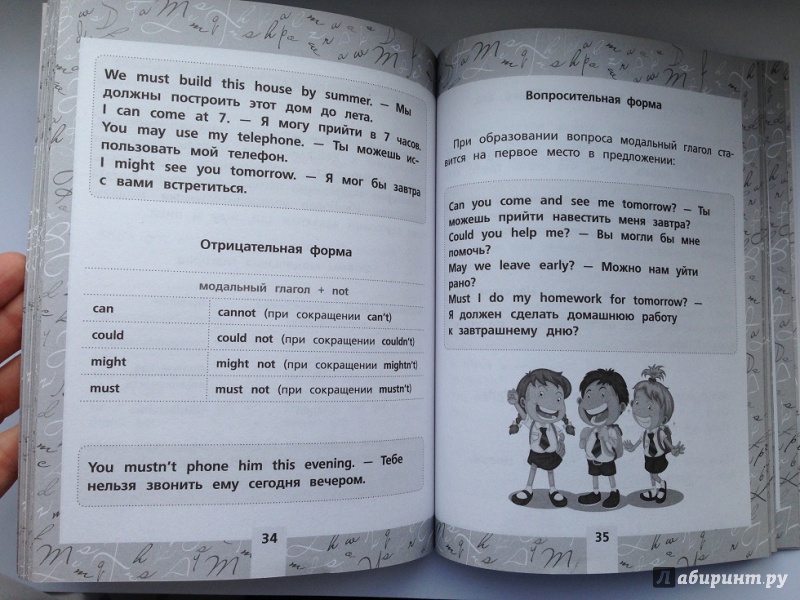 We must build this house by summer. — Мы
должны построить этот дом до лета.
I can come at 7. — Я могу прийти в 7 часов.
You may use my telephone. — Ты можешь ис-
пользовать мой телефон.
I might see you tomorrow. — Я мог бы завтра
с вами встретиться.
Отрицательная форма
модальный глагол + not
can cannot (при сокращении can't)
could could not (при сокращении couldn't)
might might not (при сокращении mightn't)
must must not (при сокращении mustn't)
You mustn't phone him this evening. — Тебе
нельзя звонить ему сегодня вечером.
34
Вопросительная форма
При образовании вопроса модальный глагол ста-
вится на первое место в предложении:
Can you come and see me tomorrow? — Ты
можешь прийти навестить меня завтра?
Could you help me? — Вы могли бы мне
помочь?
May we leave early? — Можно нам уйти
рано?
Must I do my homework for tomorrow? —
Я должен сделать домашнюю работу
к завтрашнему дню?
35
Лабиринт.ру